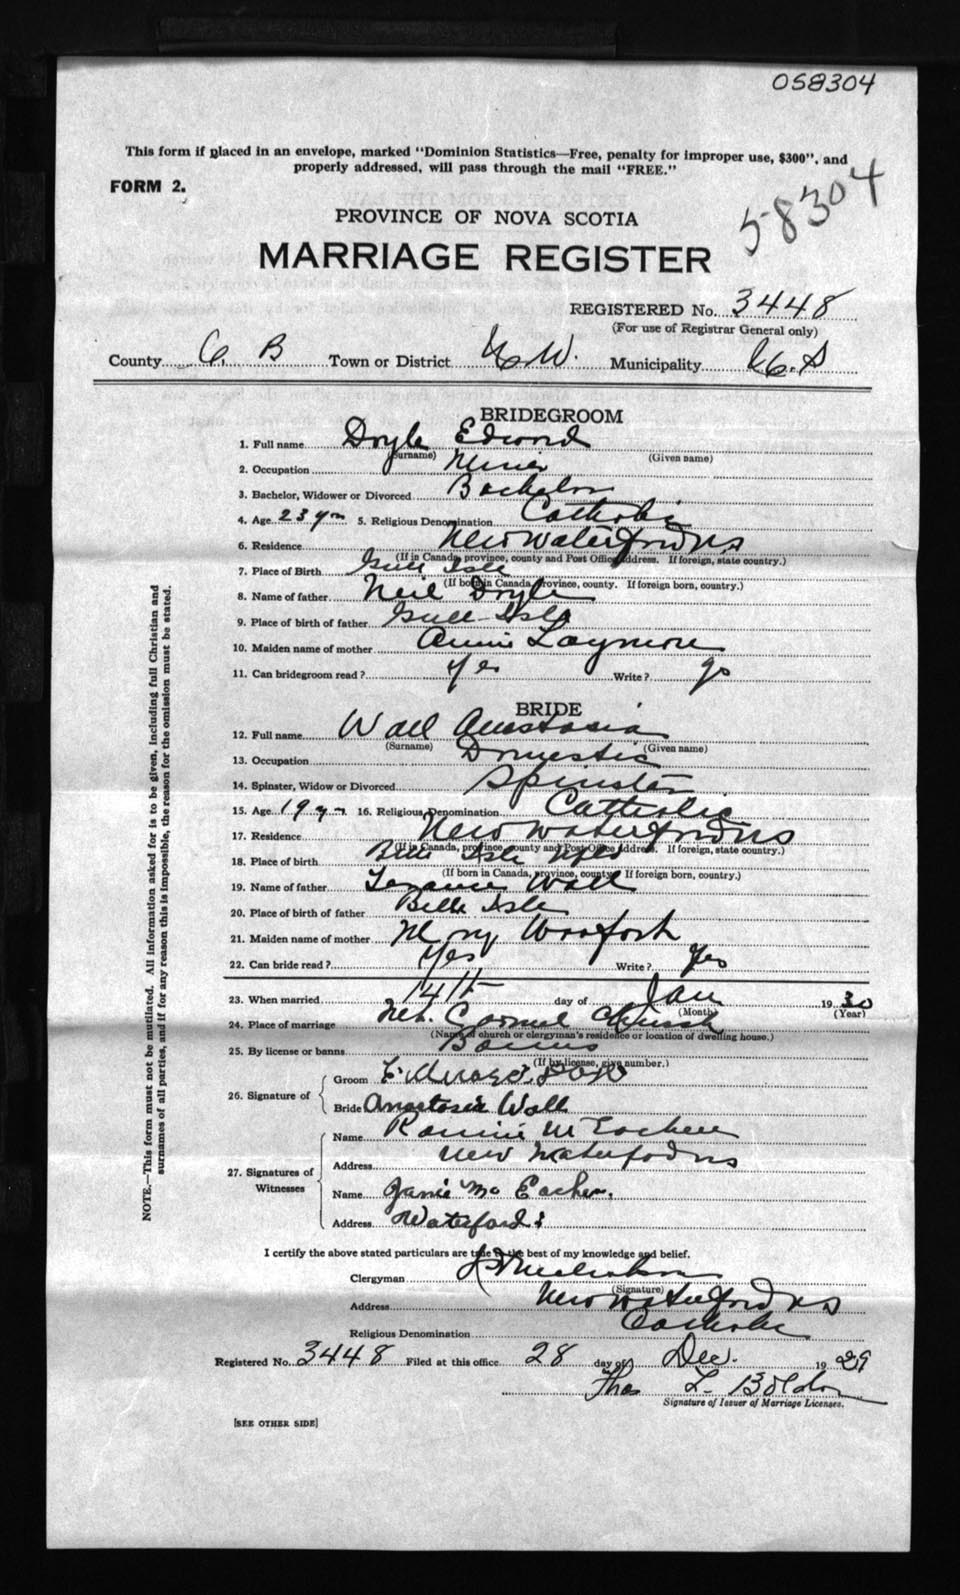 058304
This form if placed in an envelope, marked "Dominion Statistics—Free, penalty for improper use, $300", and
properly addressed, will pass through the mail "FREE."
FORM 2.
58304
PROVINCE OF NOVA SCOTIA
MARRIAGE REGISTER
REGISTERED No. 3448
(For use of Registrar General only)
County C. B Town or District N. W. Municipality
BRIDEGROOM
1. Full name Doyle Edward
(Surname) (Given name)
2. Occupation Miner
3. Bachelor, Widower or Divorced Bachelor
4. Age 23 yrs 5. Religious Denomination Catholic
6. Residence New Waterford NS
(If in Canada, province, county and Post Office address. If foreign, state country.)
7. Place of Birth Gull Isle
(If born in Canada, province, county. If foreign born, country.)
8. Name of father Neil Doyle
9. Place of birth of father Gull Isle
10. Maiden name of mother Annie
11. Can bridegroom read? Yes Write?
BRIDE
12. Full name Wall Anastasia
(Surname) (Given name)
13. Occupation Domestic
14. Spinster, Widow or Divorced Spinster
15. Age 19 yrs 16. Religious Denomination Catholic
17. Residence New Waterford NS
(If in Canada, province, county and Post Office Address. If foreign, state country.)
18. Place of birth Belle Isle Nfld
(If born in Canada, province, county. If foreign born, country.)
19. Name of father Wall
20. Place of birth of father Belle Isle
21. Maiden name of mother Mary
22. Can bride read? Yes Write? Yes
23. When married 14th day of Jan 1930
(Month) (Year)
24. Place of marriage Mt. Carmel Church
(Name of church or clergyman's residence or location of dwelling house.)
25. By license or banns Banns
(If by license, give number.)
26. Signature of
Groom
Bride Anastasia Wall
27. Signatures of Witnesses
Name Ronnie McEachern
Address New Waterford NS
Name Janie Mc Eachern.
Address Waterford
I certify the above stated particulars are true to the best of my knowledge and belief.
Clergyman
(Signature)
Address New Waterford NS
Religious Denomination Catholic
Registered No. 3448 Filed at this office 28 day of Dec. 1929
Thos L.
Signature of Issuer of Marriage Licenses.
[SEE OTHER SIDE]
NOTE.—This form must not be mutilated. All information asked for is to be given, including full Christian and
surnames of all parties, and if for any reason this is impossible, the reason for the omission must be stated.